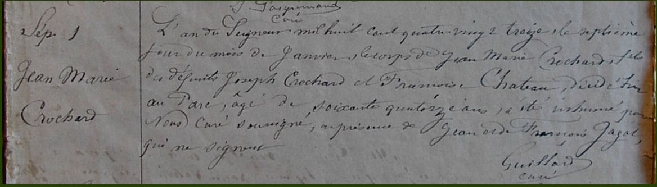 Curé
Sep. 1
Jean Marie
Crochard
L'an du Seigneur mil huit cent quatre vingt treize le septième
jour du mois de Janvier, le corps de Jean Marie Crochard, fils
des défunts Joseph Crochard et Françoise Chateau, décédé hier
au Parc, âgé de soixante quatorze ans, a été inhumé par
Nous Curé soussigné, en présence de Jean et de François Jagot,
qui ne signent
Guillard
curé